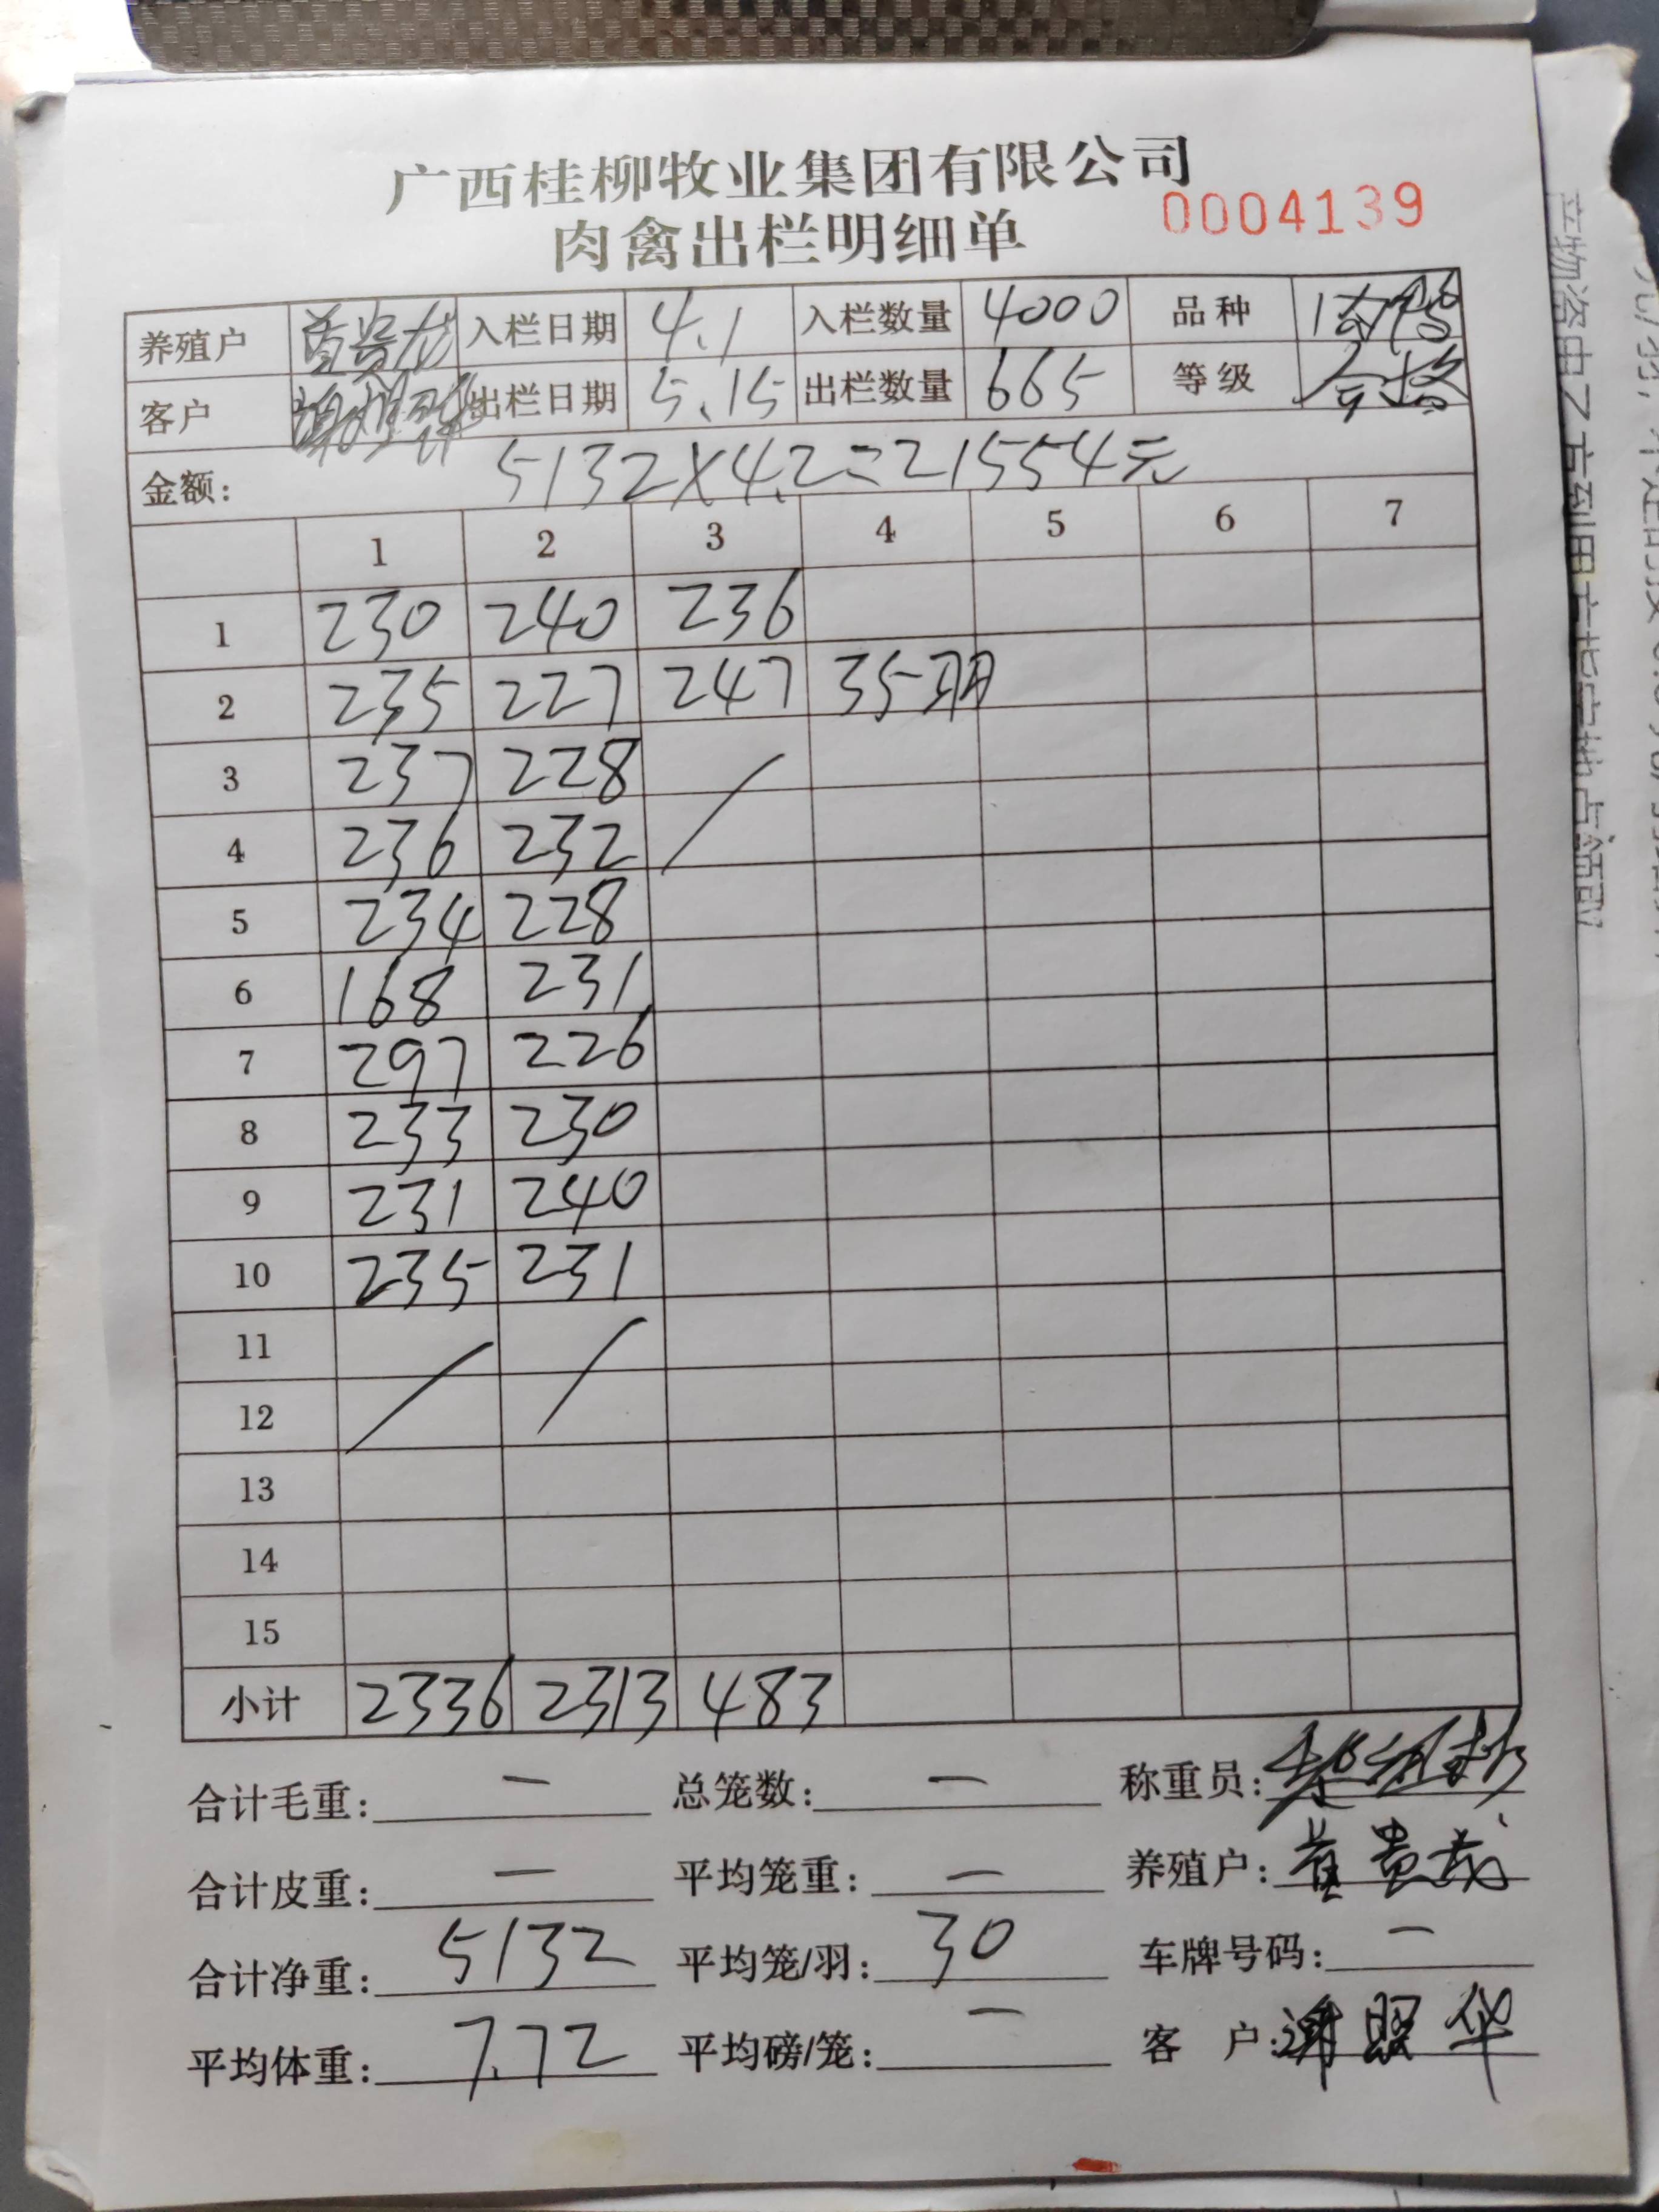 广西桂柳牧业集团有限公司
肉禽出栏明细单 0004139
养殖户 入栏日期 4.1 入栏数量 4000 品种
客户 出栏日期 5.15 出栏数量 665 等级 合格
金额: 5132×4.2=21554元
1 2 3 4 5 6 7
1 230 240 236
2 235 227 247 35羽
3 237 228
4 236 232
5 234 228
6 168 231
7 297 226
8 233 230
9 231 240
10 235 231
11
12
13
14
15
小计 2336 2313 483
合计毛重: — 总笼数: — 称重员:
合计皮重: — 平均笼重: — 养殖户: 黄贵成
合计净重: 5132 平均笼/羽: 30 车牌号码: —
平均体重: 7.72 平均磅/笼: — 客 户: 谢照华